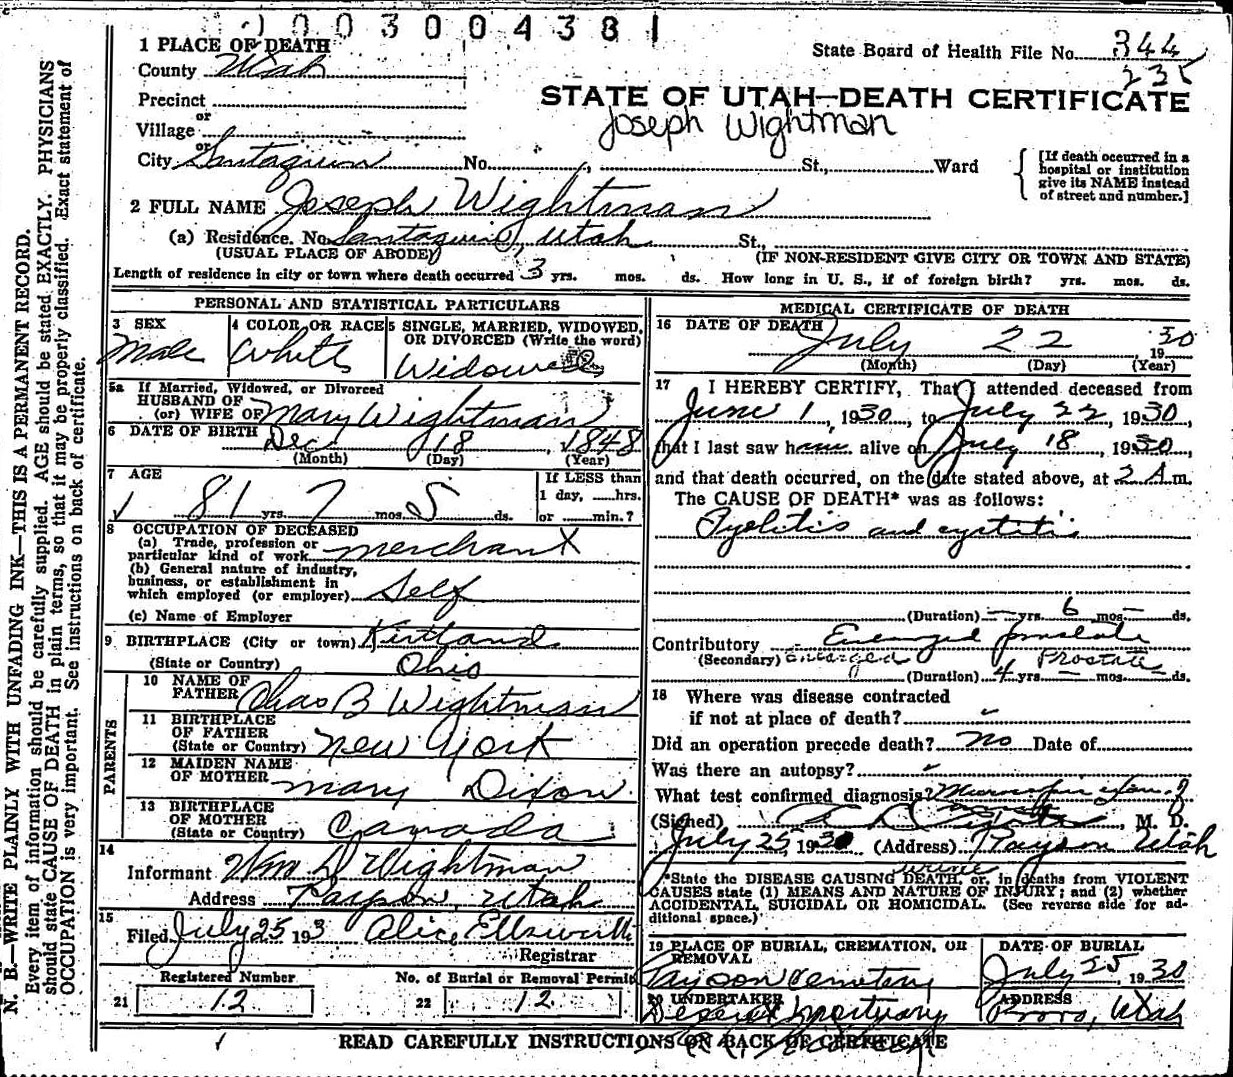 1003004381
1 PLACE OF DEATH
State Board of Health File No. 344
235
County Utah
Precinct
or
Village
or
STATE OF UTAH—DEATH CERTIFICATE
Joseph Wightman
City Santaquin No. St., Ward
[If death occurred in a hospital or institution give its NAME instead of street and number.]
2 FULL NAME Joseph Wightman
(a) Residence. No. Santaquin, Utah St.,
(USUAL PLACE OF ABODE) (IF NON-RESIDENT GIVE CITY OR TOWN AND STATE)
Length of residence in city or town where death occurred 3 yrs. mos. ds. How long in U. S., if of foreign birth? yrs. mos. ds.
PERSONAL AND STATISTICAL PARTICULARS
3 SEX Male
4 COLOR OR RACE White
5 SINGLE, MARRIED, WIDOWED, OR DIVORCED (Write the word)
Widowed
5a If Married, Widowed, or Divorced
HUSBAND OF
(or) WIFE OF Mary Wightman
6 DATE OF BIRTH Dec 18, 1848
(Month) (Day) (Year)
7 AGE
81 yrs. 7 mos. 5 ds.
If LESS than
1 day, hrs.
or min.?
8 OCCUPATION OF DECEASED
(a) Trade, profession or
particular kind of work merchant X
(b) General nature of industry,
business, or establishment in
which employed (or employer) Self
(c) Name of Employer
9 BIRTHPLACE (City or town) Kirtland
(State or Country) Ohio
PARENTS
10 NAME OF
FATHER Chas B Wightman
11 BIRTHPLACE
OF FATHER
(State or Country) New York
12 MAIDEN NAME
OF MOTHER Mary Dixon
13 BIRTHPLACE
OF MOTHER
(State or Country) Canada
14
Informant Wm D Wightman
Address Payson, Utah
15
Filed July 25 193 Alice Ellsworth
Registrar
Registered Number
21 12
No. of Burial or Removal Permit
22 12
MEDICAL CERTIFICATE OF DEATH
16 DATE OF DEATH
July 22 1930
(Month) (Day) (Year)
17 I HEREBY CERTIFY, That I attended deceased from
June 1, 1930, to July 22, 1930
that I last saw him alive on July 18, 1930,
and that death occurred, on the date stated above, at 2 A.m.
The CAUSE OF DEATH* was as follows:
Pyelitis and cystitis
(Duration) — yrs. 6 mos. — ds.
Contributory Enlarged prostate
(Secondary) Enlarged Prostate
(Duration) 4 yrs. — mos. — ds.
18 Where was disease contracted
if not at place of death?
Did an operation precede death? no Date of
Was there an autopsy?
What test confirmed diagnosis? exam. of
urine
(Signed) M. D.
July 25, 1930 (Address) Payson Utah
*State the DISEASE CAUSING DEATH, or, in deaths from VIOLENT
CAUSES state (1) MEANS AND NATURE OF INJURY; and (2) whether
ACCIDENTAL, SUICIDAL OR HOMICIDAL. (See reverse side for ad-
ditional space.)
19 PLACE OF BURIAL, CREMATION, OR
REMOVAL
Payson Cemetery
DATE OF BURIAL
July 25, 1930
20 UNDERTAKER
Deseret Mortuary
ADDRESS
Provo, Utah
READ CAREFULLY INSTRUCTIONS ON BACK OF CERTIFICATE
N. B.—WRITE PLAINLY WITH UNFADING INK—THIS IS A PERMANENT RECORD.
Every item of information should be carefully supplied. AGE should be stated EXACTLY. PHYSICIANS
should state CAUSE OF DEATH in plain terms, so that it may be properly classified. Exact statement of
OCCUPATION is very important. See instructions on back of certificate.